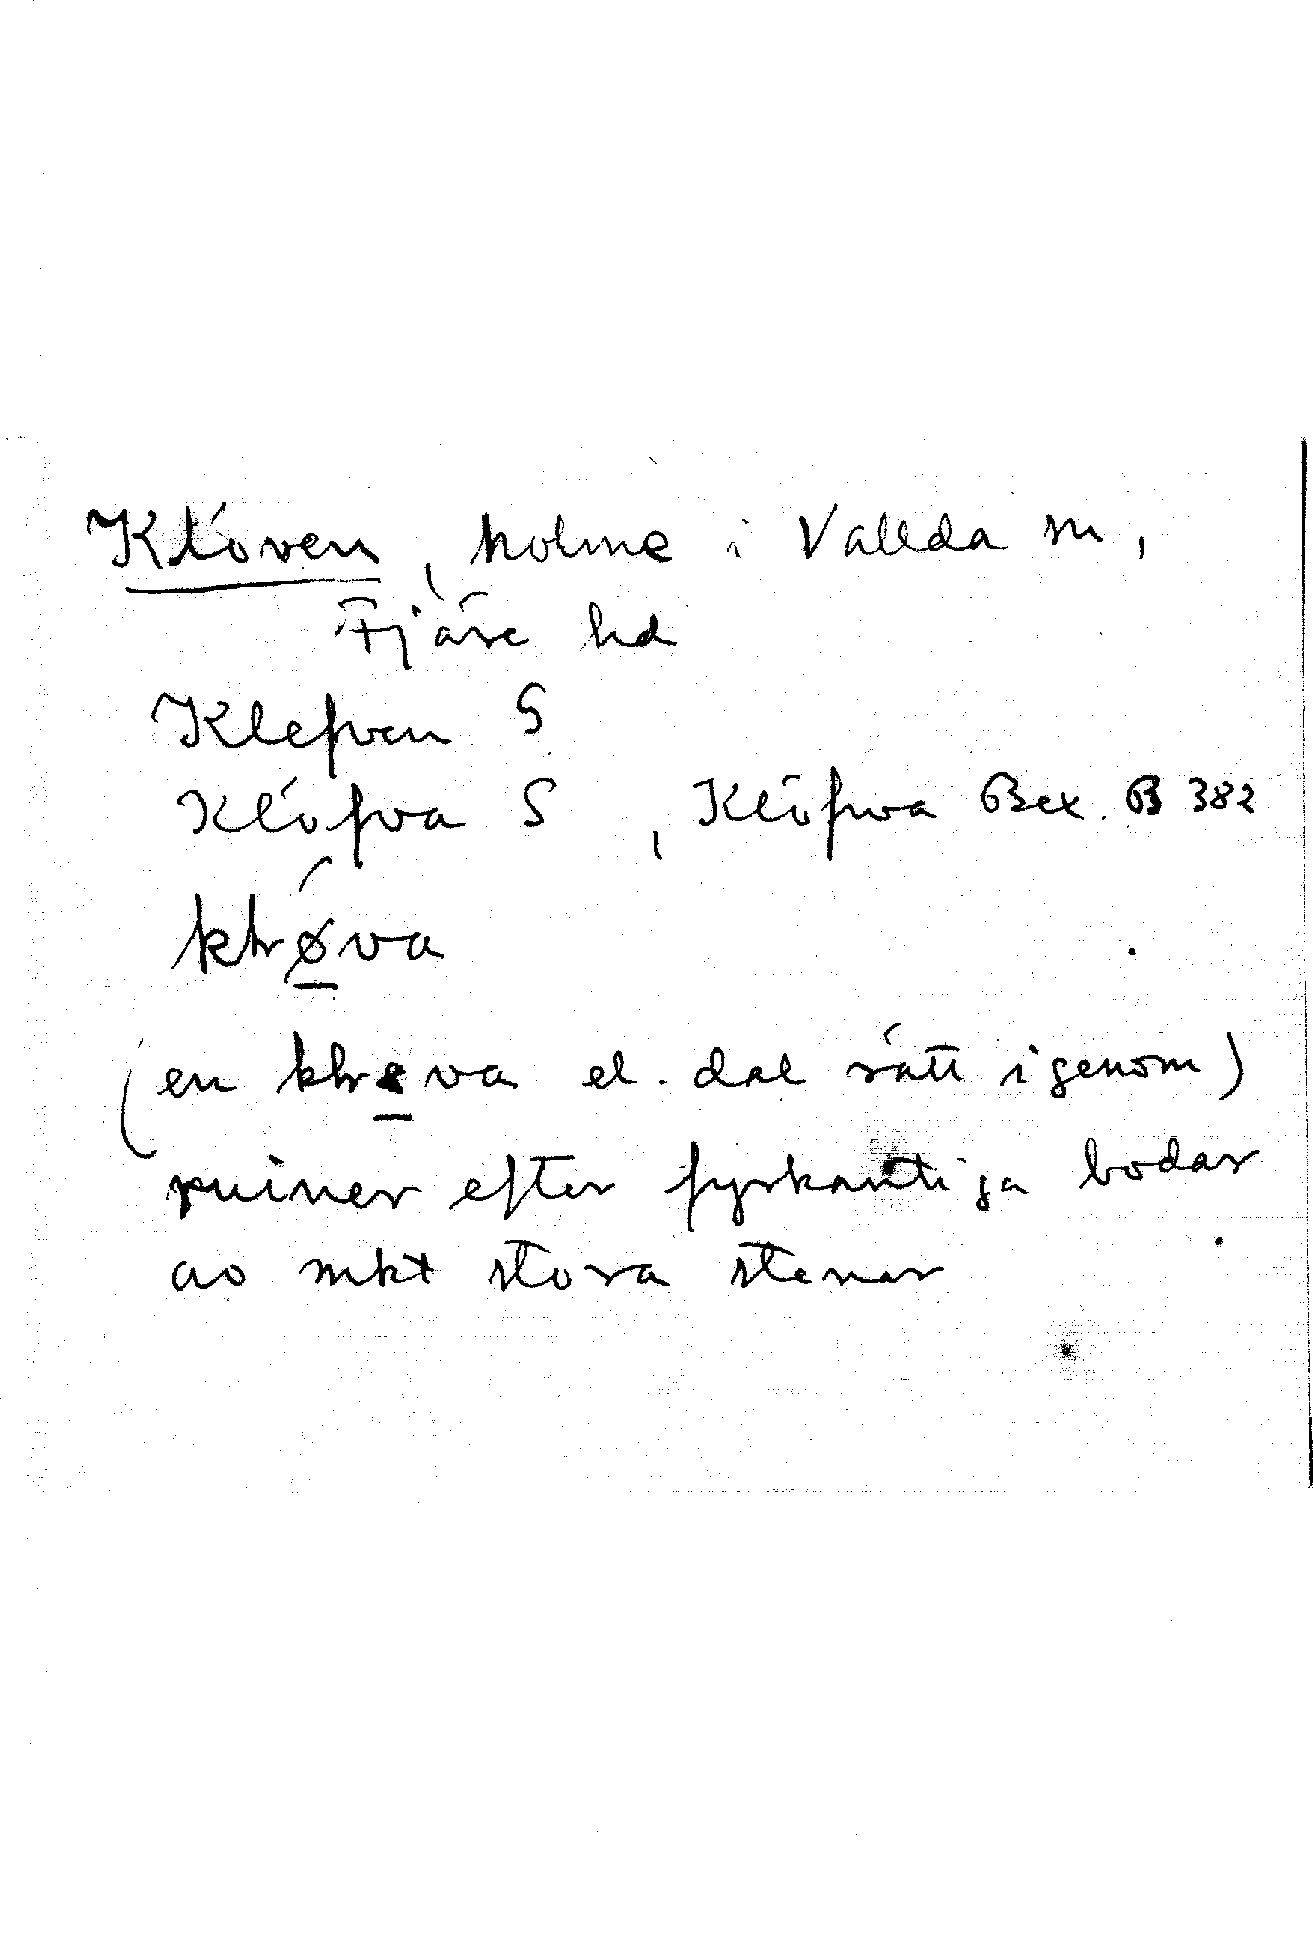 Klöven, holme i Vallda sn,
Fjäre hd
Klefven S
Klöfva S, Klöfwa Bex. B 382
klrø̲va
(en klrø̲va el. dal rätt igenom)
ruiner efter fyrkantiga bodar
av mkt stora stenar